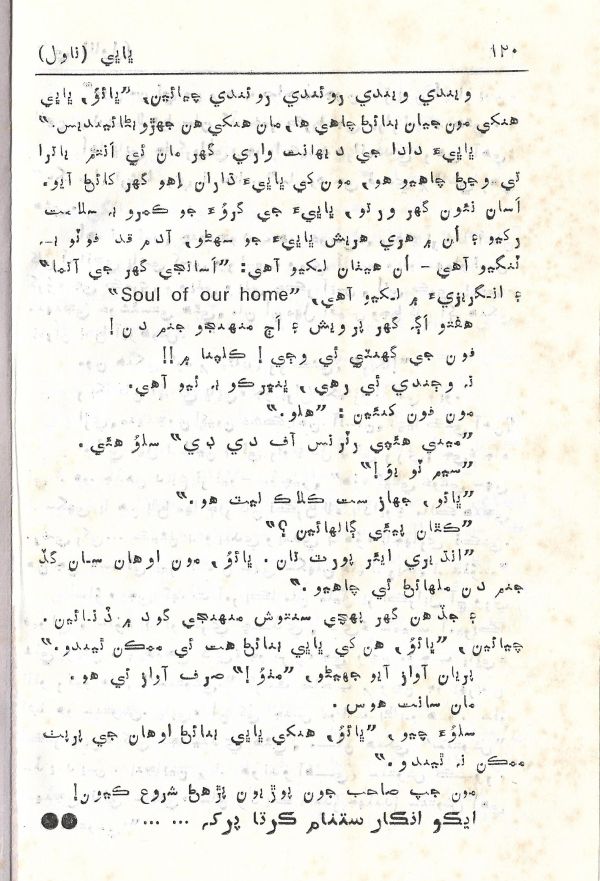 ۱۲۰ پاپي (ناول)
ويندي ويندي روئندي روئندي چيائين، ”ڀائوُ، پاپي
هنکي مون جيان بنائڻ چاهي ها، مان هنکي هن جھڙو بڻائينديس.“
پاپيءَ دادا جي ديهانت واري گهر مان ئي اَنتم ياترا
تي وڃڻ چاهيو هو، مون کي پاپيءَ ڌاران اِهو گهر کائڻ آيو.
اَسان نئون گهر ورتو، پاپيءَ جي گروُءَ جو ڪمرو بہ سلامت
رکيو ۽ اُن ۾ هري هريش پاپيءَ جو سهڻو، آدم قد فوٽو بہ
ٽنگيو آهي – اُن هيٺان لکيو آهي: ”اَسانجي گهر جي آتما“
۽ انگريزيءَ ۾ لکيو آهي، ”Soul of our home“
هفتو اڳہ گهر پرويش ۽ اڄ منهنجو جنم دن!
فون جي گهنٽي ئي وڃي! ڪلپنا ۾!!
نہ وڄندي ئي رهي، پنڀرڪو بہ ٿيو آهي.
مون فون کنئين: ”هلو.“
”ميني هئپي رٽرنس آف دي ڊي“ سلوُ هئي.
”سيم ٽو يوُ!“
”ڀائو، جهاز ست ڪلاڪ ليٽ هو.“
”ڪٿان پيئي ڳالهائين؟“
”انڌيري ايئر پورٽ تان. ڀائوُ، مون اوهان سان گڏ
جنم دن ملهائڻ ئي چاهيو.“
۽ جڏهن گهر پهچي سنتوش منهنجي گود ۾ ڏنائين.
چيائين، ”ڀائوُ، هن کي پاپي بنائڻ هت ئي ممڪن ٿيندو.“
پريان آواز آيو جهيڻو، ”منوُ!“ صرف آواز ئي هو.
مان سانت هوس.
سلوُءَ چيو، ”ڀائوُ، هنکي پاپي بنائڻ اوهان جي پرپٺ
ممڪن نہ ٿيندو.“
مون جپ صاحب جون پوڙيون پڙهڻ شروع ڪيون!
ايڪو انڪار ستنام ڪرتا پرکہ ... ...